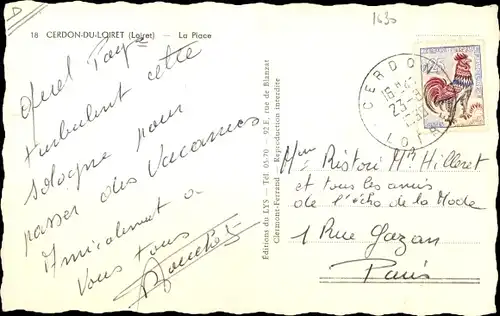 D
1630
18 CERDON-DU-LOIRET (Loiret) — La Place
Quel Pays
turbulent cette
Sologne pour
passer des Vacances
Amicalement a
Vous tous
Editions du LYS — Tél. 05-70 — 92 E, rue de Blanzat
Clermont-Ferrand — Reproduction interdite
CERDON
23
LOIRET
Mme Ristori Mr Hilleret
et tous les amis
de l'écho de la Mode
1 Rue Gazan
Paris